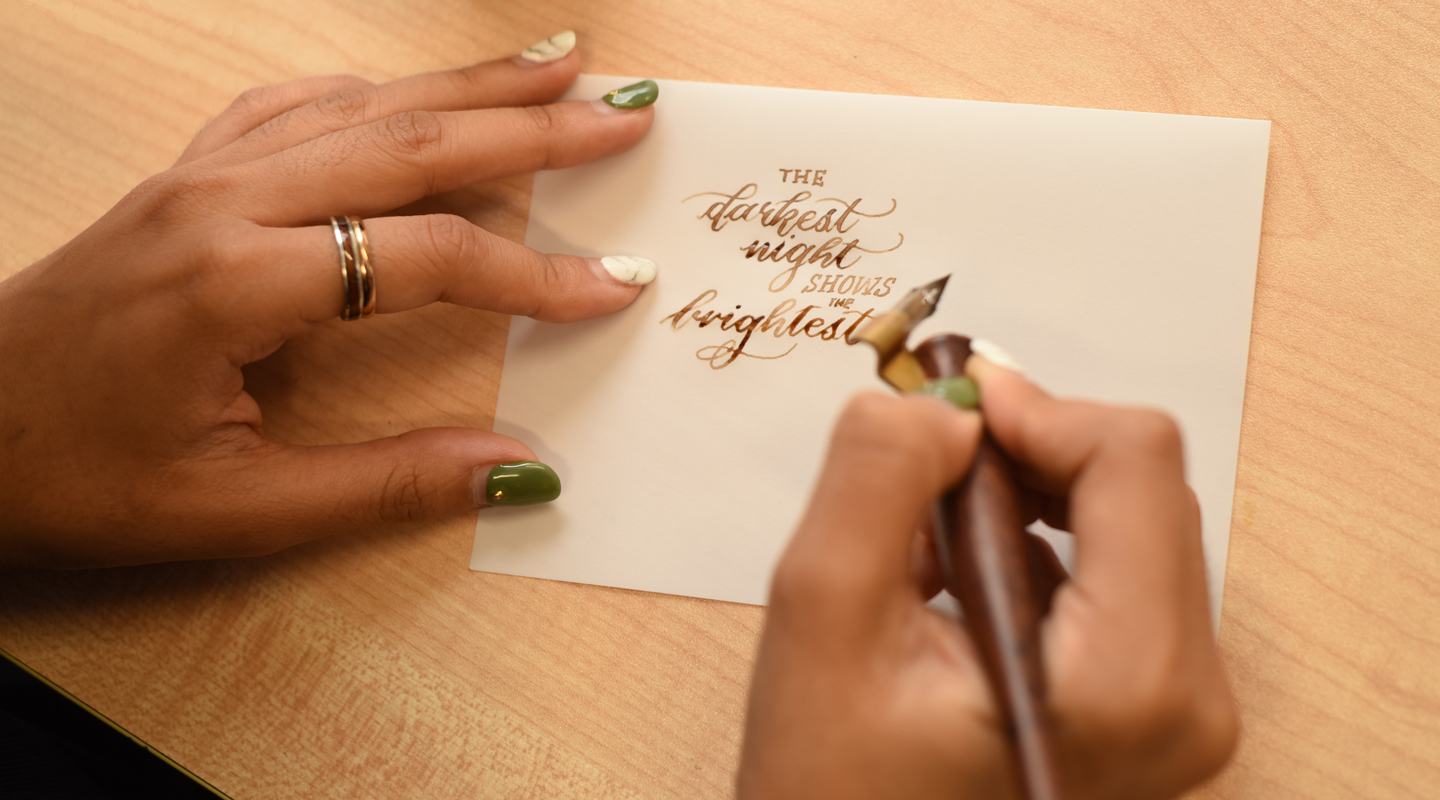 THE
darkest
night
SHOWS
THE
brightest